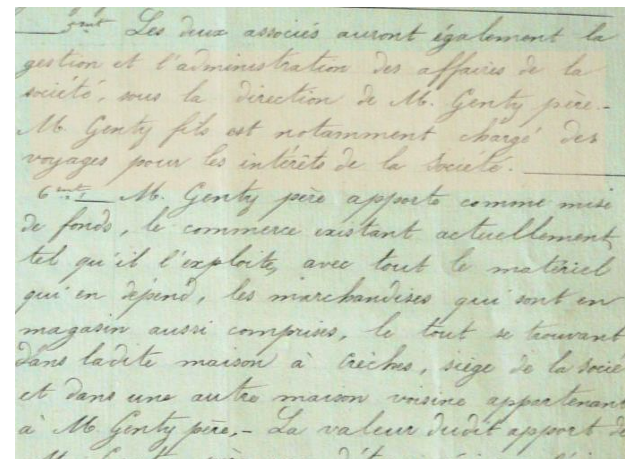 5ent Les deux associés auront également la
gestion et l'administration des affaires de la
société, sous la direction de M. Genty père.-
M. Genty fils est notamment chargé des
voyages pour les intérêts de la Société.
6ent, M. Genty père apporte comme mise
de fonds, le commerce existant actuellement,
tel qu'il l'exploite, avec tout le matériel
qui en dépend, les marchandises qui sont en
magasin aussi comprises, le tout se trouvant
dans ladite maison à Crèches, siège de la socié
et dans une autre maison voisine appartenant
à M. Genty père,- La valeur dudit apport de